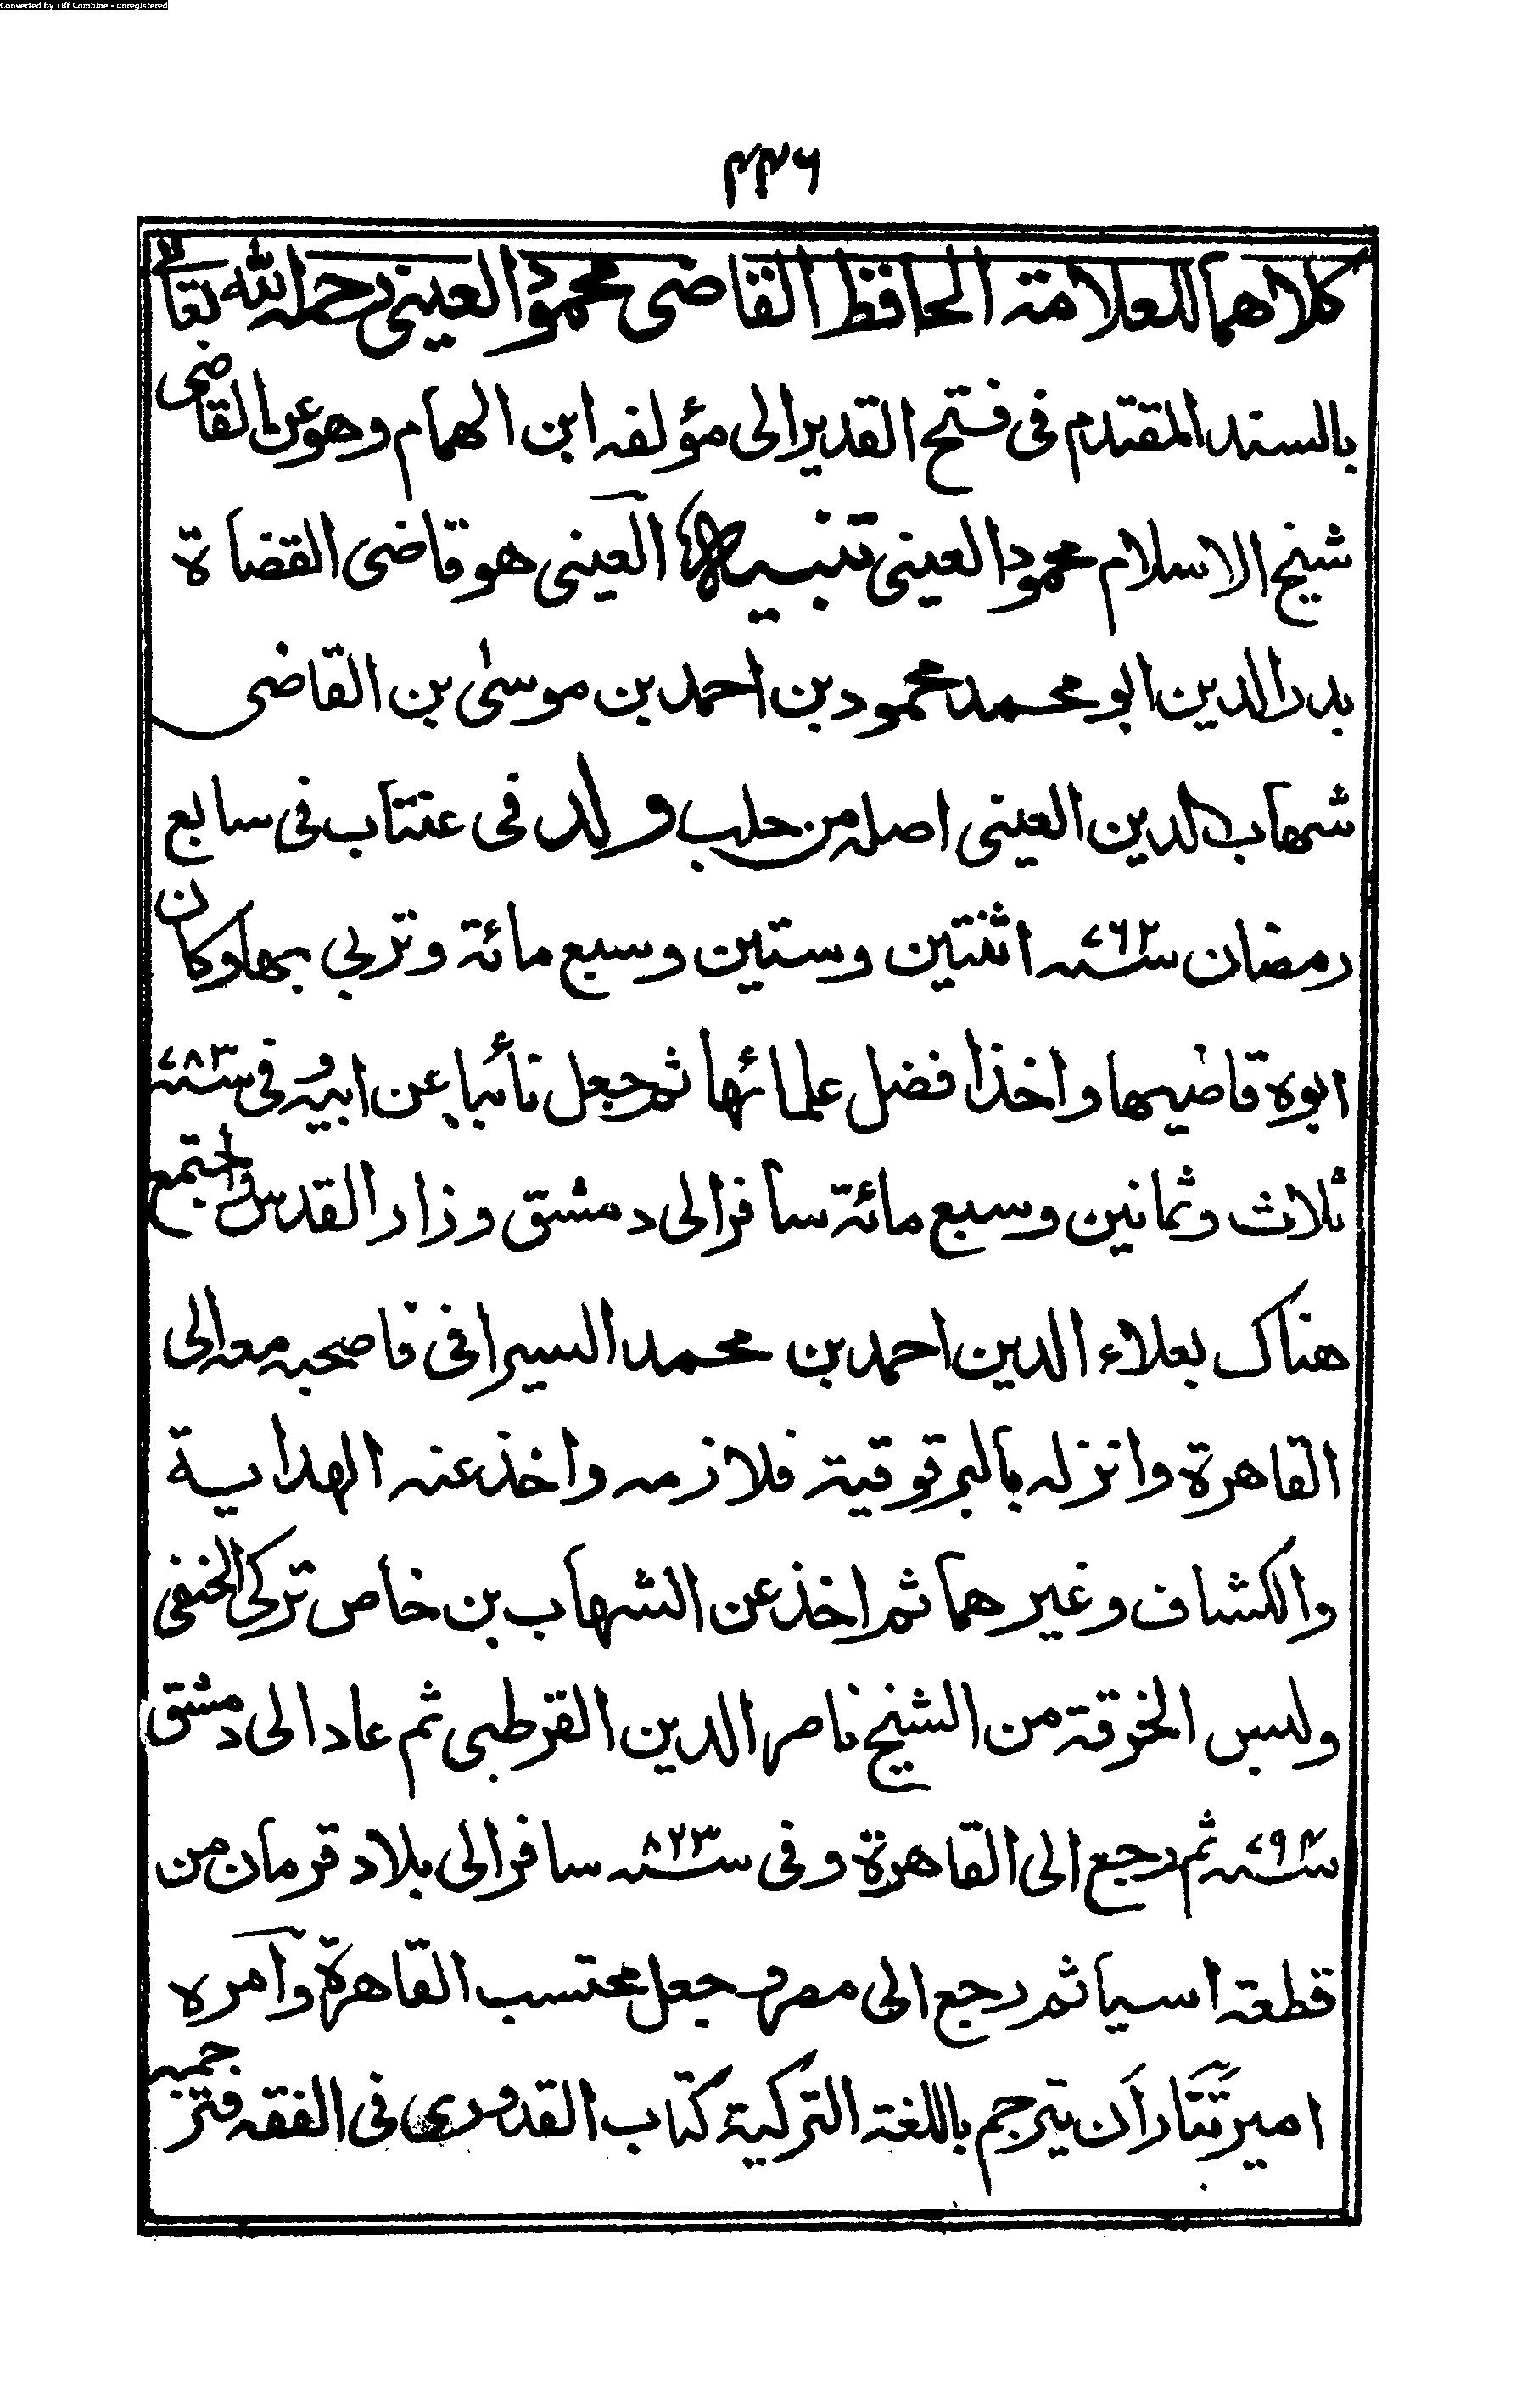 Converted by Tiff Combine - unregistered
۴۴۶
كلاهما للعلامة الحافظ القاضى محمود العينى رحمه الله تعالى
بالسند المقتدم فى فتح القدير الى مؤلفه ابن الهمام وهو عن القاضى
شيخ الاسلام محمود العينى تنبيه العينى هو قاضى القضاة
بدر الدين ابو محمد محمود بن احمد بن موسىٰ بن القاضى
شهاب الدين العينى اصله من حلب ولد فى عنتاب فى سابع
رمضان سنه ۷۶۲ اثنتين وستين وسبع مائة وتربى بها وكان
ابوه قاضيها واخذ افضل علمائها ثم جعل نائبا عن ابيه فى سنه ۷۸۳
ثلاث وثمانين وسبع مائة سافر الى دمشق وزار القدس واجتمع
هناك بعلاء الدين احمد بن محمد السيرافى فاصحبه معه الى
القاهرة وانزله بالبرقوقية فلازمه واخذ عنه الهداية
والكشاف وغيرهما ثم اخذ عن الشهاب بن خاص تركى الحنفى
ولبس الخرقة من الشيخ ناصر الدين القرطبى ثم عاد الى دمشق
سنه ۷۹۴ ثم رجع الى القاهرة وفى سنه ۸۲۳ سافر الى بلاد قرمان من
قطعة اسيا ثم رجع الى مصر وجعل محتسب القاهرة وآمره
امير تتار ان يترجم باللغة التركية كتاب القدورى فى الفقه فترجمه